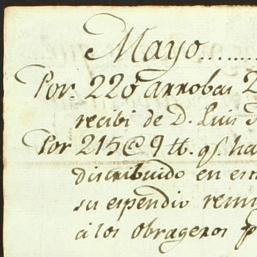 Mayo........
Por. 220 arrobas 2
recibi de D. Luis
Por 215@9 tt. qe. ha
distribuido en est
su espendio remi
á los obrageros p